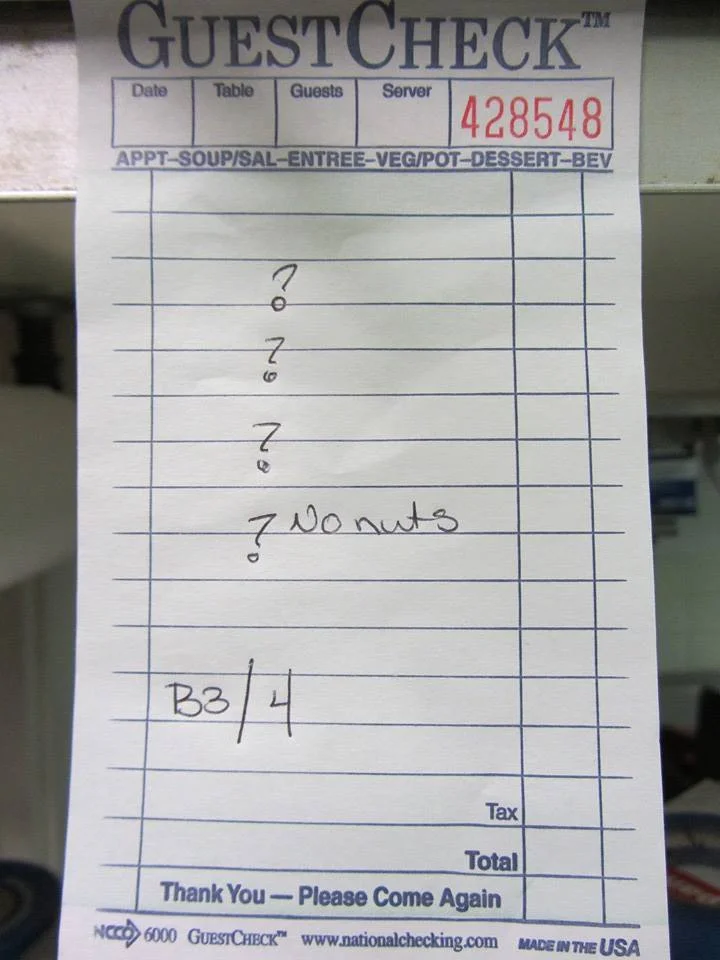 GUESTCHECK™
Date Table Guests Server 428548
APPT–SOUP/SAL–ENTREE–VEG/POT–DESSERT–BEV
?
?
?
? No nuts
B3/4
Tax
Total
Thank You — Please Come Again
NCCO 6000 GUESTCHECK™ www.nationalchecking.com MADE IN THE USA